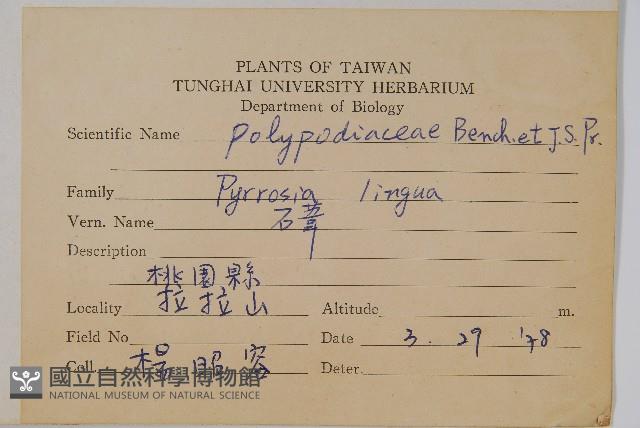 PLANTS OF TAIWAN
TUNGHAI UNIVERSITY HERBARIUM
Department of Biology
Scientific Name Polypodiaceae Bench. et J.S. Pr.
Family Pyrrosia lingua
Vern. Name 石葦
Description
桃園縣
Locality 拉拉山 Altitude m.
Field No Date 3. 29 '78
Coll. 楊昭容 Deter.
國立自然科學博物館
NATIONAL MUSEUM OF NATURAL SCIENCE